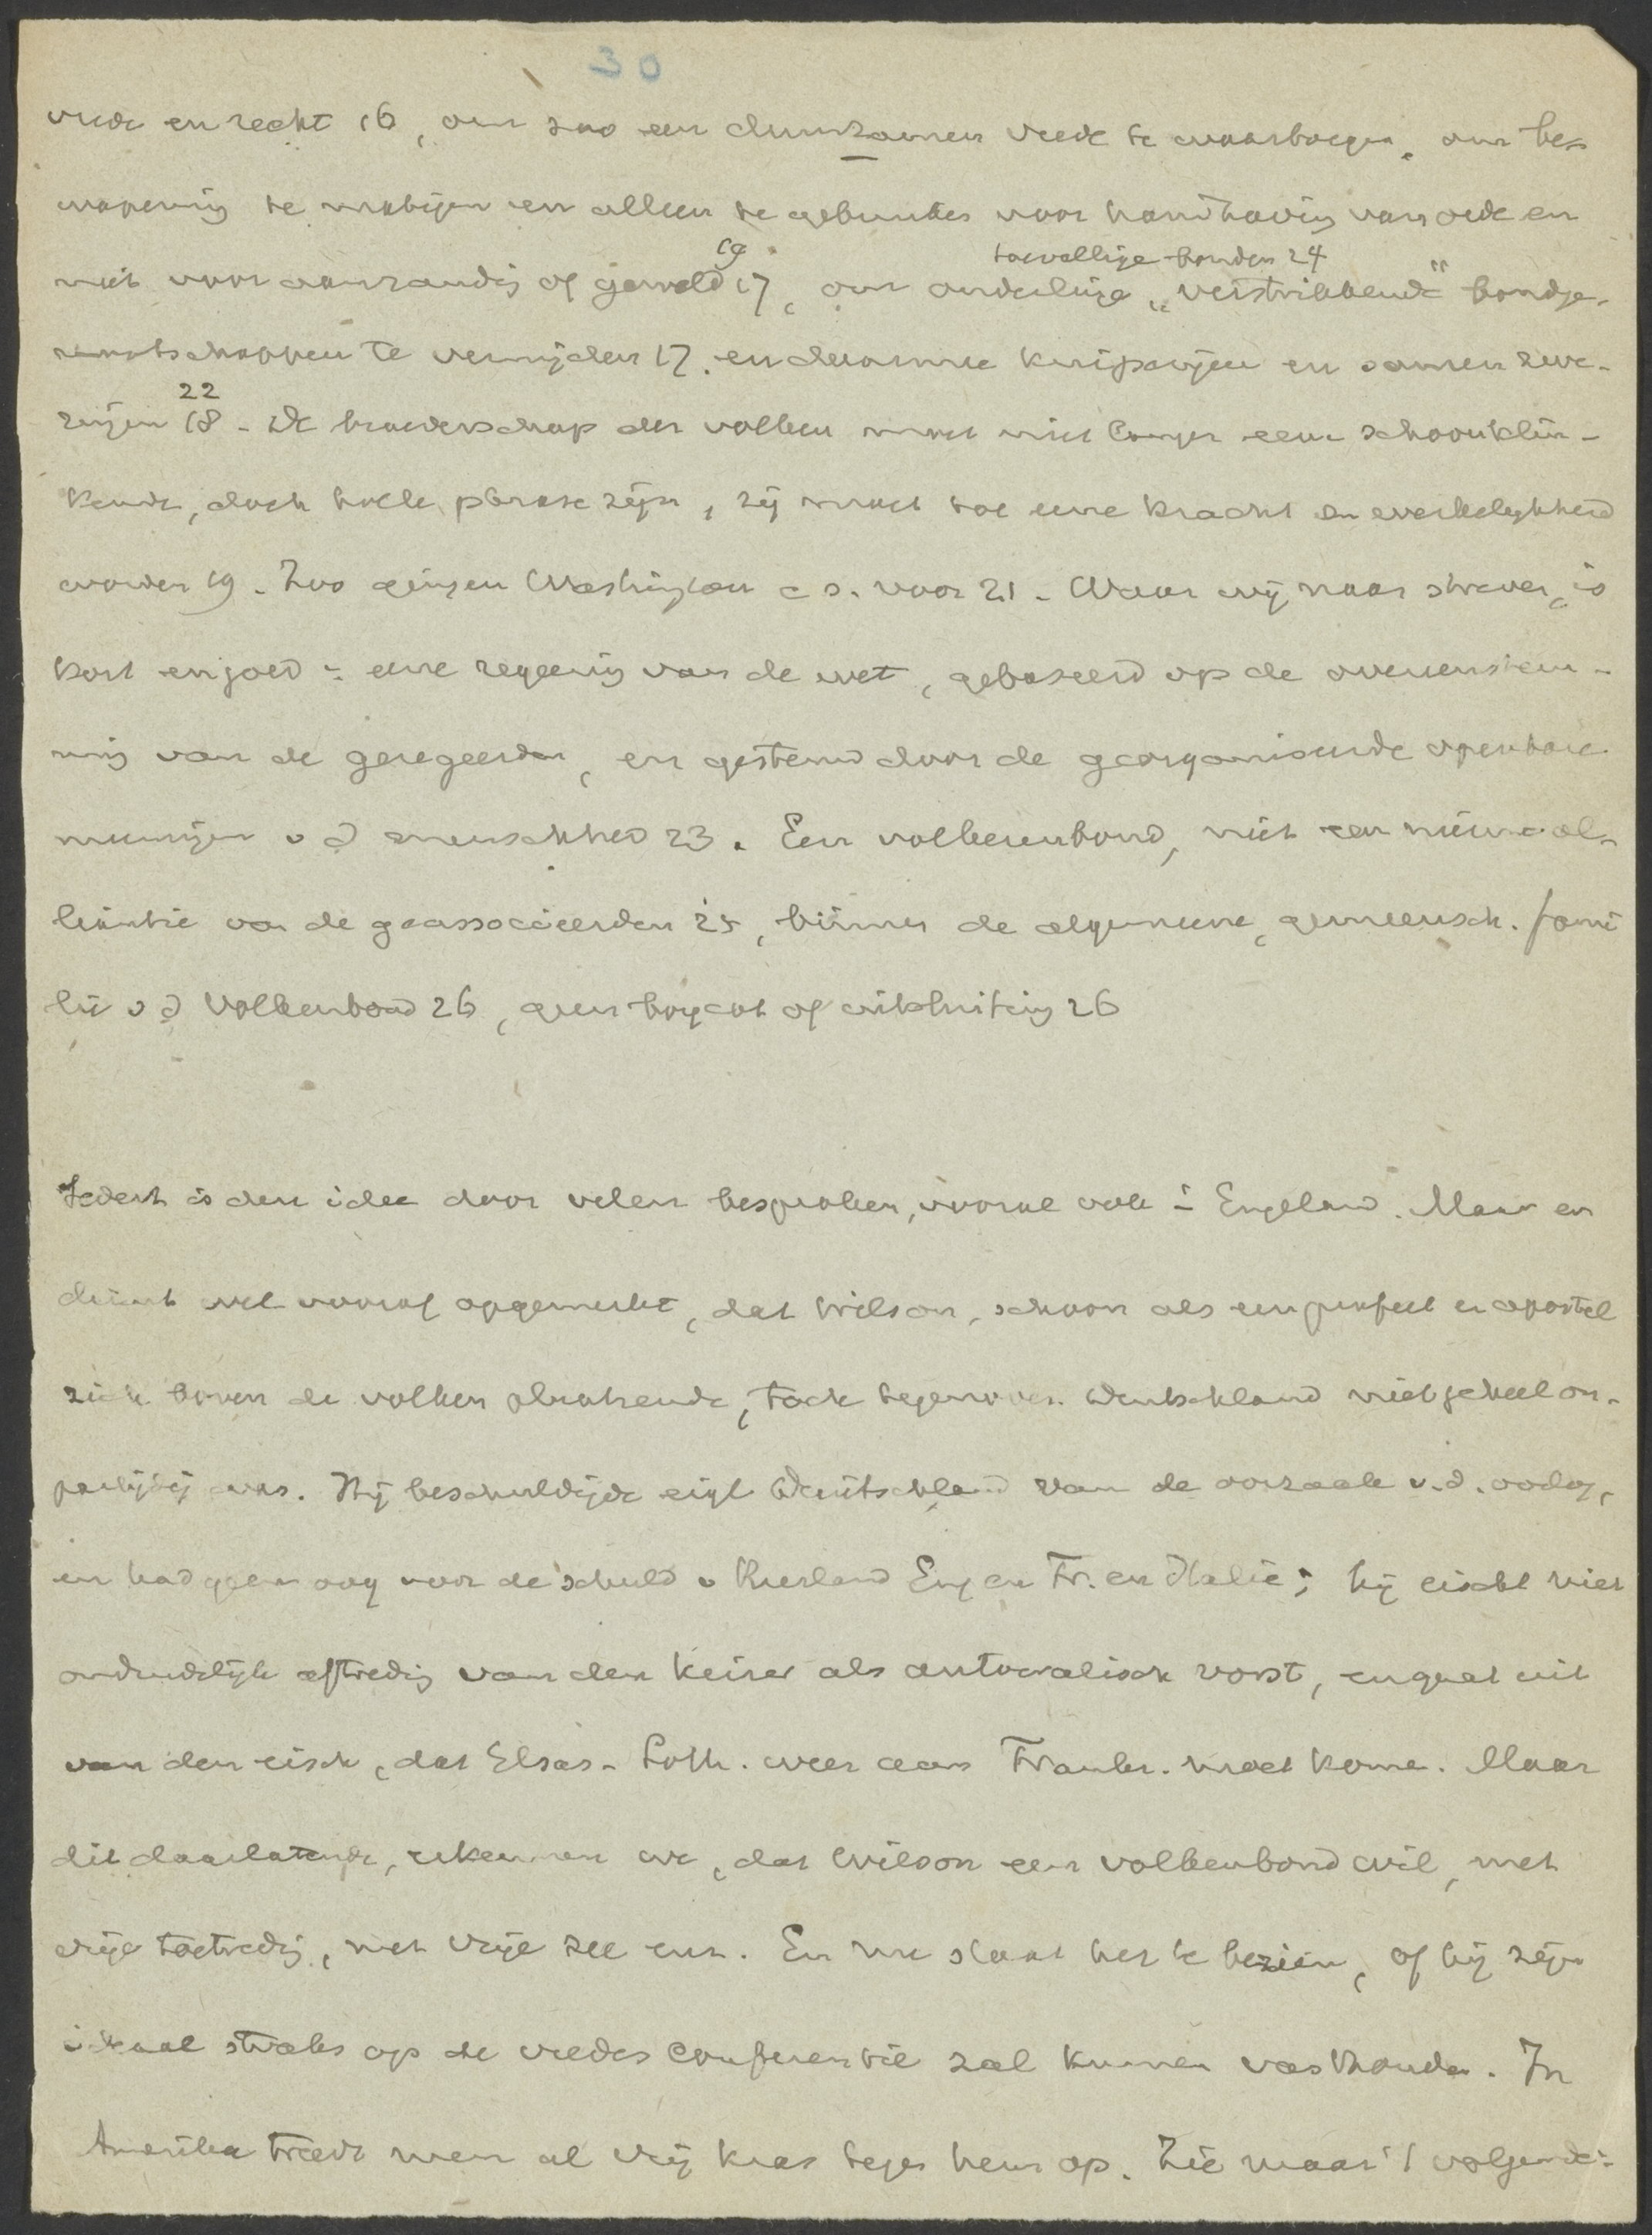 30
vrede en recht 16, om zoo een duurzamen vrede te waarborgen, om be-
wapening te matigen en alleen te gebruiken voor handhaving van orde en
19 toevallige bonden 24
niet voor aanranding of geweld 17, om onderlinge „verstrikkende" bondge-
nootschappen te vermijden 17. en daarmee kuiperijen en samenzwe-
22
ringen 18 - De broederschap der volken moet niet langer eene schoonklin-
kende, doch holle phrase zijn, zij moet tot eene kracht en werkelijkheid
worden 19 - Zoo gingen Washington c s. voor 21 - Waar wij naar streven, is
kort en goed : eene regeering van de wet, gebaseerd op de overeenstem-
ming van de geregeerden, en gesteund door de georganiseerde openbare
meeningen v d menschheid 23. Een volkerenbond, niet een nieuwe al-
liantie van de geassocieerden 25, binnen de algemeene, gemeensch. fami
lie v d Volkenbond 26, geen boycot of uitsluiting 26
Sedert is den idee door velen besproken, vooral ook i Engeland. Maar er
dient wel vooraf opgemerkt, dat Wilson, schoon als een profeet en apostel
zich boven de volken plaatsende, toch tegenover Duitschland niet geheel on-
partijdig was. Hij beschuldigde eigl Duitschland van de oorzaak v. d. oorlog,
en had geen oog voor de schuld v Rusland Eng en Fr. en Italië; hij eischt niet
onduidelijk aftreding van den Keizer als autocratisch vorst, en gaat uit
van den eisch, dat Elsas-Loth. weer aan Frankr. moet kome. Maar
dit daarlatende, erkennen we, dat Wilson een volkenbond wil, met
vrije toetreding, met vrije zee enz. En nu staat het te bezien, of hij zijn
ideaal straks op de vredes conferentie zal kunnen vasthouden. In
Amerika treedt men al vrij kras tegen hem op. Zie maar 't volgende: